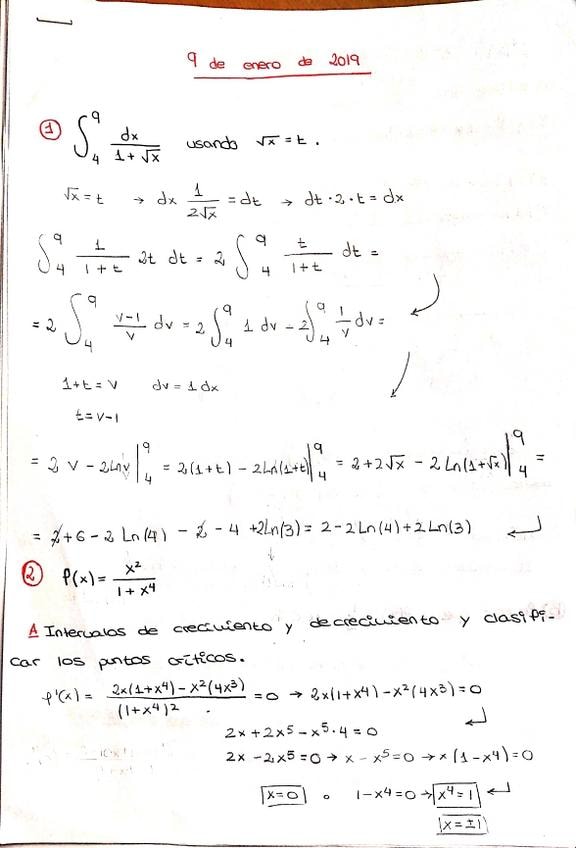 9 de enero de 2019
1 ∫₄⁹ dx/(1+√x) usando √x = t.
√x = t → dx 1/(2√x) = dt → dt·2·t = dx
∫₄⁹ 1/(1+t) 2t dt = 2 ∫₄⁹ t/(1+t) dt =
= 2 ∫₄⁹ (v-1)/v dv = 2 ∫₄⁹ 1 dv - 2 ∫₄⁹ 1/v dv =
1+t = v dv = 1 dx
t = v-1
= 2 v - 2 Ln v |₄⁹ = 2(1+t) - 2Ln(1+t) |₄⁹ = 2+2√x - 2 Ln(1+√x) |₄⁹ =
= 2+6-2 Ln(4) - 2 - 4 +2Ln(3) = 2-2Ln(4)+2Ln(3)
2 f(x) = x²/(1+x⁴)
A Intervalos de crecimiento y decrecimiento y clasifi-
car los puntos críticos.
f'(x) = (2x(1+x⁴) - x²(4x³))/(1+x⁴)² = 0 → 2x(1+x⁴) - x²(4x³) = 0
2x + 2x⁵ - x⁵·4 = 0
2x - 2x⁵ = 0 → x - x⁵ = 0 → x(1-x⁴) = 0
x=0 o 1-x⁴ = 0 → x⁴ = 1
x = ±1